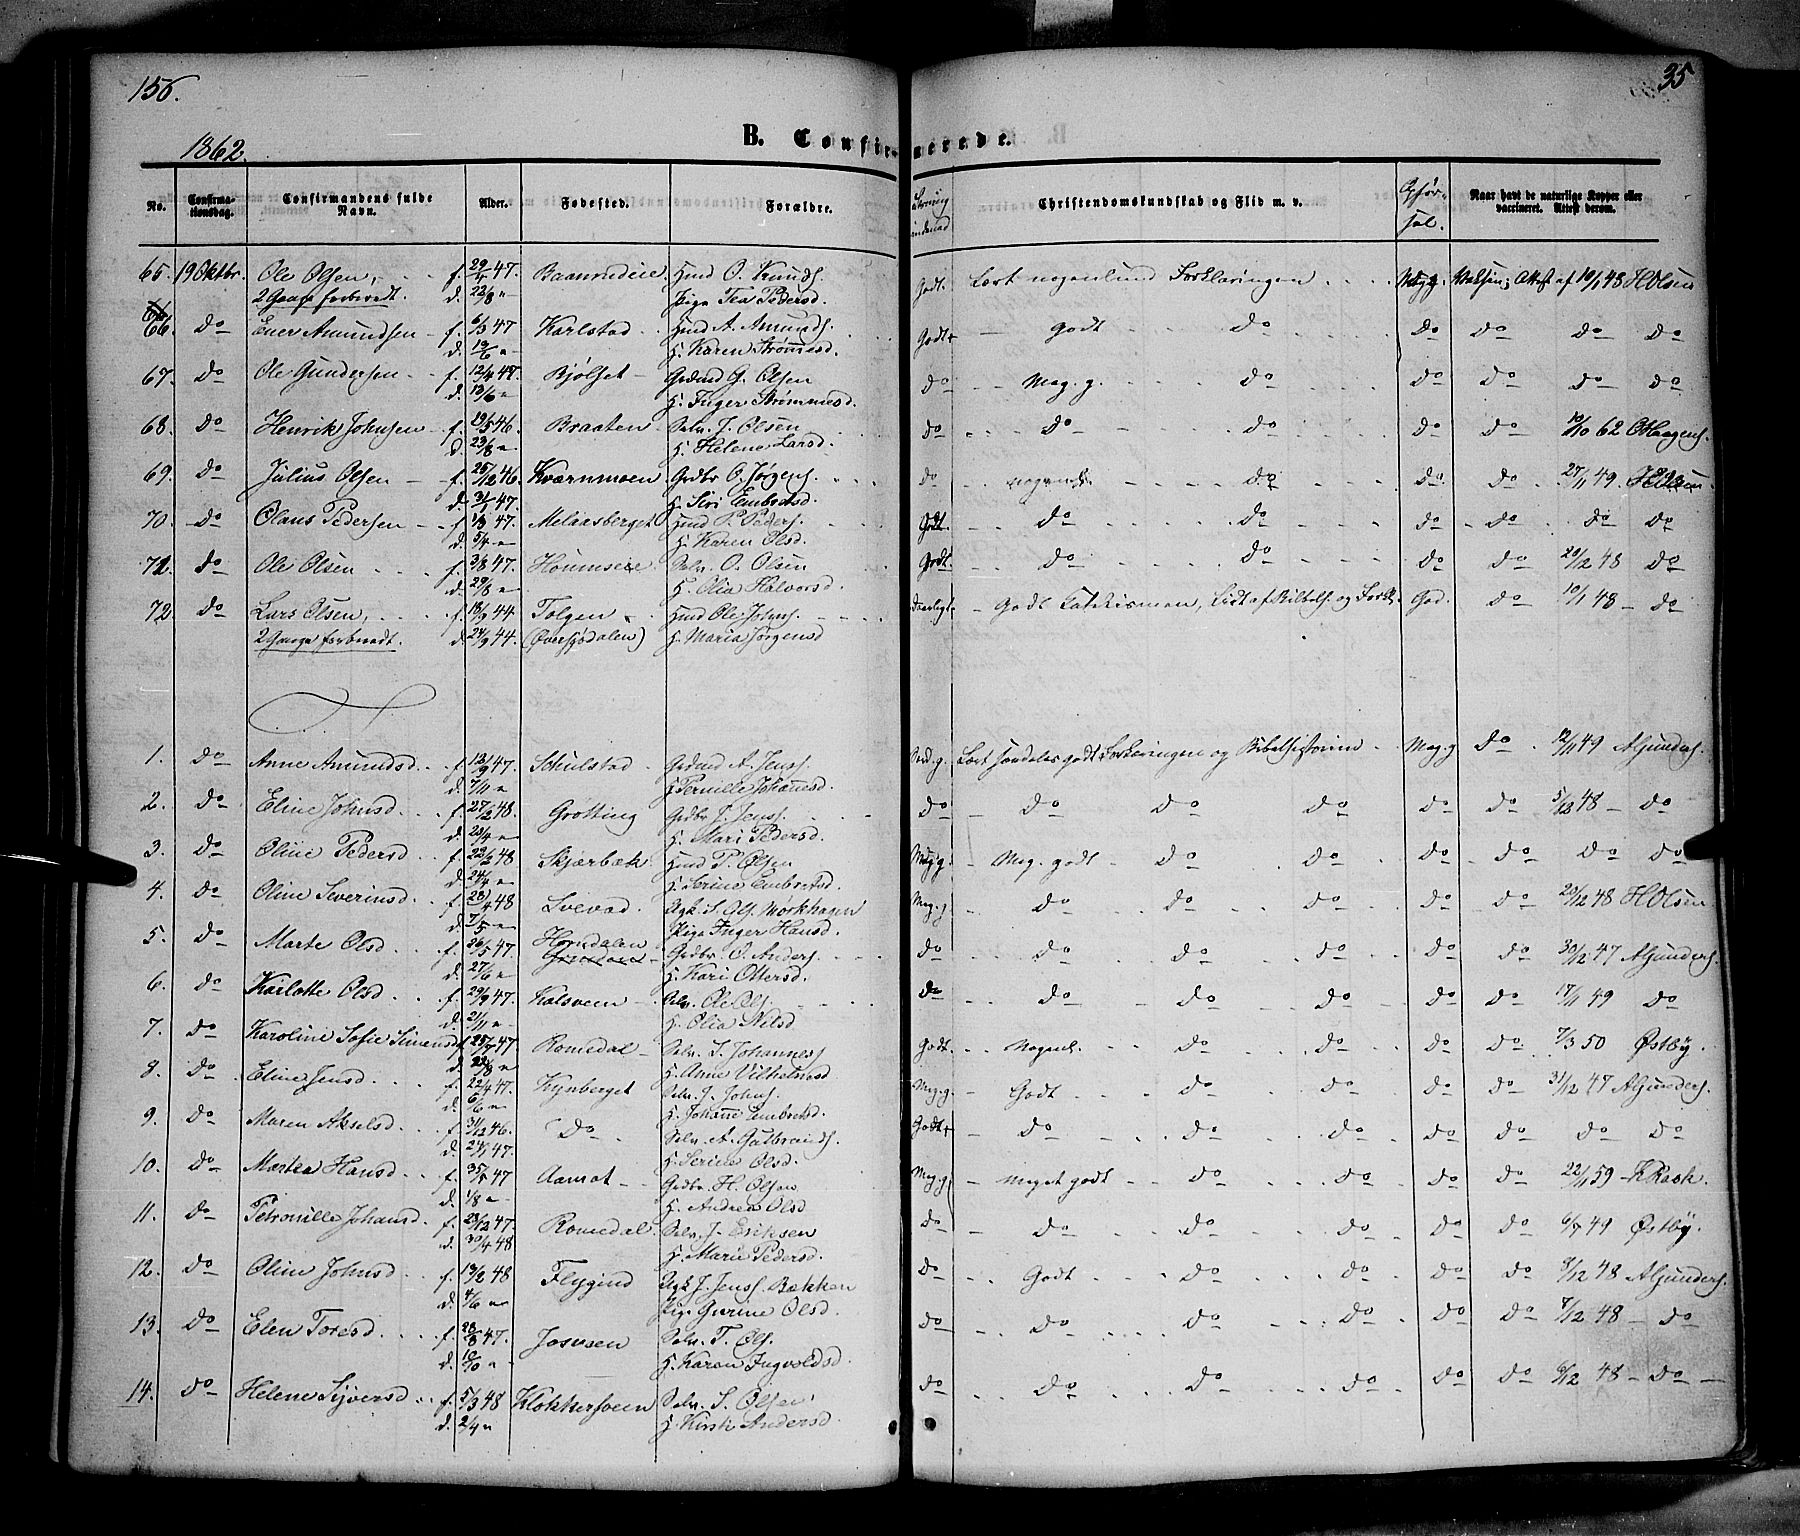 156.
35
1862.
B. Confirmerede.
No. Confirmationsdag. Confirmandens fulde Navn. Alder. Fødested. Forældre. Christendomskundskab og Flid m. v. Opførsel. Naar havt de naturlige Kopper eller vaccineret. Attest derom.
65. 19 Oktbr. Ole Olsen, f. 29/4 47. Braanedeie Hmd O. Knuds. Godt. Lært nogenlund Forklaringen Meg. g. Attest af 10/1 48 HOlsen
2 Gange forberedt. d. 22/8 " Pige Tea Pedersd.
66. do Ener Amundsen f. 6/3 47 Karlstad Hmd A. Amunds. Godt godt do do do do do
d. 13/6 " H. Karen Strømesd.
67. do Ole Gundersen f. 12/4 47. Bjølset Grdmd G. Olsen do Meg. g. do do do do do
d. 13/6 " H. Inger Strømmesd.
68. do Henrik Johnsen f. 19/5 46. Braaten Selv. J. Olsen do do do do do 10/10 62 OHaagens.
d. 23/8 " H. Helene Larsd.
69. do Julius Olsen f. 25/12 46. Kværnmoen Grdbr O. Jørgens. do nogenl. do do do 27/11 49 HOlsen
d. 31/1 47. H. Siri Embretsd.
70. do Olaus Pedersen f. 1/3 47. Meliasberget Hmd P. Peders. Godt do do do do do do
d. 5/4 " H. Karen Olsd.
71. do Ole Olsen f. 3/8 47. Houmseie Selv. O. Olsen Godt. do do do do 20/12 48 do
d. 29/8 " H. Olia Halvorsd.
72. do Lars Olsen, f. 18/9 44. Tolgen Hmd Ole Johns. Daarligt Godt Katekismen, Lidt af Bibelh. og Forkl. God. do 10/1 48 do
2 Gange forberedt. d. 24/9 44. (Øversjødalen) H. Maria Jørgensd
1. do Anne Amundsd. f. 12/9 47. Schulstad Grdmd A. Jens. Med. g. Lært særdeles godt Forklaringen og Bibelhistorien Meg. g do 12/11 49 AGunders.
d. 7/11 " H. Pernille Johannesd.
2. do Eline Johnsd. f. 27/2 48. Grøtting Grdbr J. Jens. do do do do do do 5/12 48 do
d. 23/4 " H. Mari Pedersd.
3. do Oline Pedersd f. 22/3 48 Skjærbæk Hmd P. Olsen Meg. g. Meg. godt do do do do do do
d. 24/4 " H. Serine Embretsd.
4. do Oline Severinsd. 48 Svevad. Ugk. S. Ols. Mørkhagen Meg. g do do do do do 20/12 48 HOlsen
d. 7/5 " Pige Inger Hansd.
5. do Marte Olsd f. 26/5 47. Horndalen Grdbr. O. Anders. do do do do do do 30/12 47 AGunders.
d. 27/6 " H. Kari Ottersd.
6. do Karlotte Olsd f. 29/9 47. Kalsveen Selv. Ole Ols. do do do do do do 17/1 49 do
d. 21/11 " H. Olia Nilsd
7. do Karoline Sofie Simensd f. 25/7 47 Romedal Selv. S. Johannes. Godt. Nogenl. do do do do 7/3 50 Østby.
d. 22/8 " H. Anne Vilhelmsd
8. do Eline Jensd. f. 22/4 47. Kynberget Selv. J. Johns. Meg. g. Godt do do do do 31/12 47 AGunders.
d. 6/6 " H. Johanne Embretsd.
9. do Maren Akselsd. f. 31/12 46. do Selv. A. Gulbrands. Godt do do do do do do do
d. 24/1 47. H. Serine Olsd.
10. do Martea Hansd. 47 Aamot Grdbr. H. Olsen Meg. g Meget godt do do do do 22/1 59 KRask.
d. 1/8 " H. Andrea Olsd
11. do Petronille Johansd. f. 23/12 47. Romedal. Selv. J. Eriksen do do do do do do 6/7 49 Østby.
d. 30/4 48 H. Marie Pedersd.
12. do Oline Johnsd. f. 13/2 48 Flygind Ugk J. Jens. Bækken do Godt do do do do 8/12 48 AGunders.
d. 4/6 " Pige Gurine Olsd.
13. do Elen Toresd. f. 28/8 47. Josveen Selv. T. Ols. do do do do do do 7/12 48 do
d. 10/10 " H. Karen Ingvoldsd.
14. do Helene Syversd f. 5/3 48 Klokkersveen Selv. S. Olsen do do do do do do 6/12 48 do
d. 2/4 " H. Kirsti Andersd.